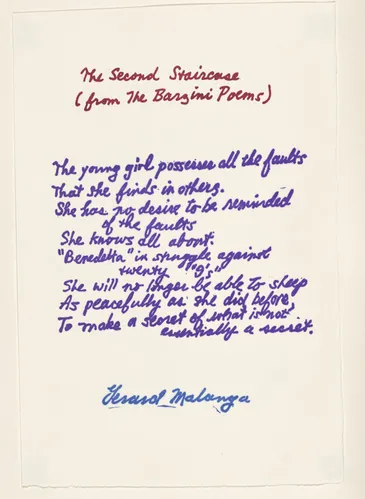 The Second Staircase
(from The Barzini Poems)
The young girl possesses all the faults
That she finds in others.
She has no desire to be reminded
of the faults
She knows all about:
"Benedetta" in struggle against
twenty "g's"
She will no longer be able to sleep
As peacefully as she did before,
To make a secret of what is not
essentially a secret.
Gerard Malanga